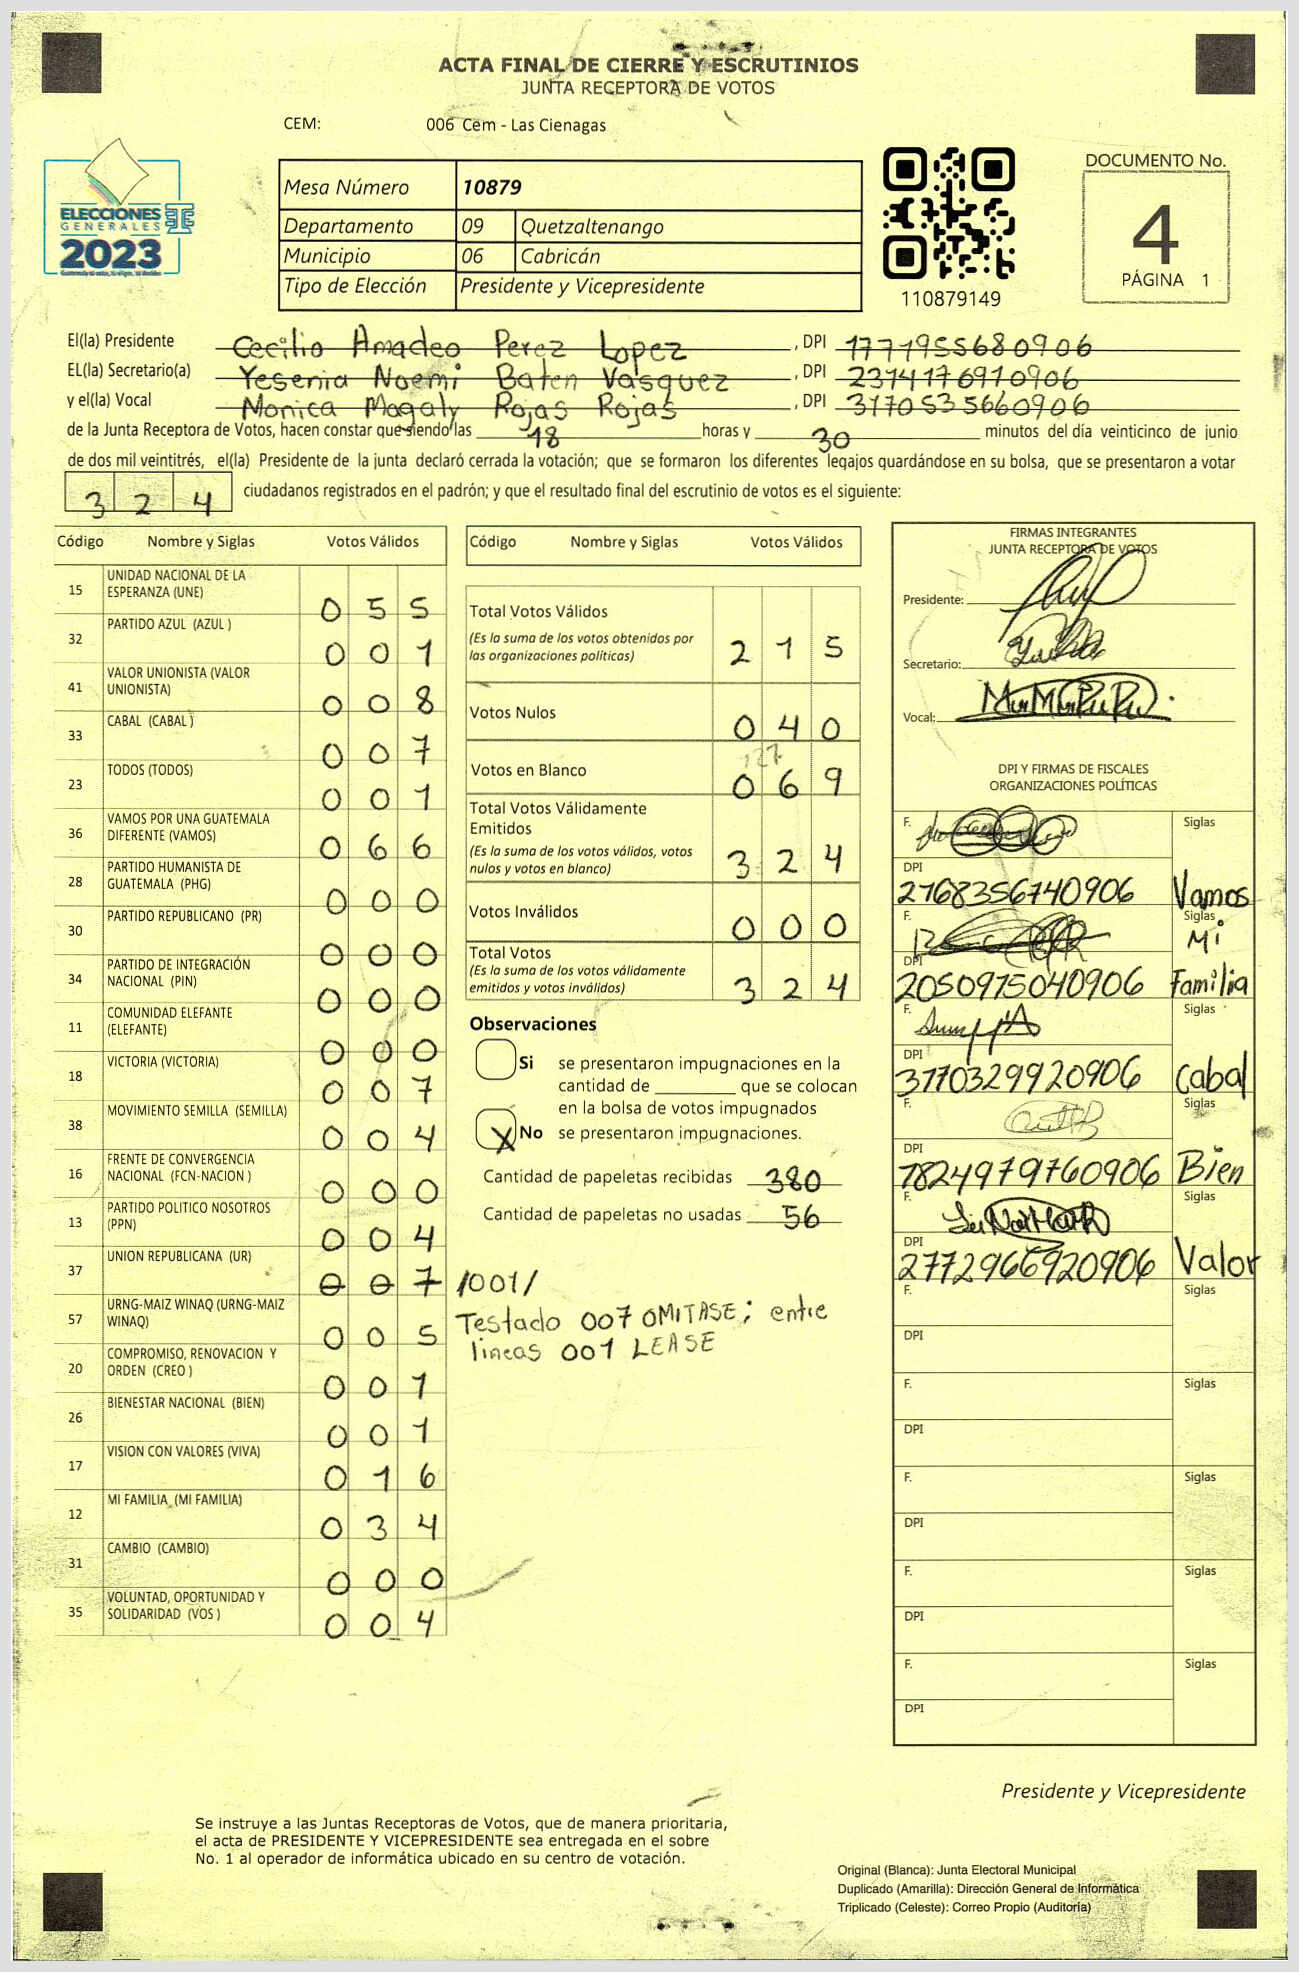 ACTA FINAL DE CIERRE Y ESCRUTINIOS
JUNTA RECEPTORA DE VOTOS
CEM: 006 Cem - Las Cienagas
ELECCIONES
GENERALES
2023
Mesa Número 10879
Departamento 09 Quetzaltenango
Municipio 06 Cabricán
Tipo de Elección Presidente y Vicepresidente
110879149
DOCUMENTO No.
4
PÁGINA 1
El(la) Presidente Cecilio Amadeo Perez Lopez, DPI 1771955680906
EL(la) Secretario(a) Yesenia Noemi Baten Vasquez, DPI 2314176910906
y el(la) Vocal Monica Magaly Rojas Rojas, DPI 3170535660906
de la Junta Receptora de Votos, hacen constar que siendo las 18 horas y 30 minutos del día veinticinco de junio
de dos mil veintitrés, el(la) Presidente de la junta declaró cerrada la votación; que se formaron los diferentes legajos quardándose en su bolsa, que se presentaron a votar
324 ciudadanos registrados en el padrón; y que el resultado final del escrutinio de votos es el siguiente:
Código Nombre y Siglas Votos Válidos
15 UNIDAD NACIONAL DE LA
ESPERANZA (UNE) 055
32 PARTIDO AZUL (AZUL ) 001
41 VALOR UNIONISTA (VALOR
UNIONISTA) 008
33 CABAL (CABAL ) 007
23 TODOS (TODOS) 001
36 VAMOS POR UNA GUATEMALA
DIFERENTE (VAMOS) 066
28 PARTIDO HUMANISTA DE
GUATEMALA (PHG) 000
30 PARTIDO REPUBLICANO (PR) 000
34 PARTIDO DE INTEGRACIÓN
NACIONAL (PIN) 000
11 COMUNIDAD ELEFANTE
(ELEFANTE) 000
18 VICTORIA (VICTORIA) 007
38 MOVIMIENTO SEMILLA (SEMILLA) 004
16 FRENTE DE CONVERGENCIA
NACIONAL (FCN-NACION ) 000
13 PARTIDO POLITICO NOSOTROS
(PPN) 004
37 UNION REPUBLICANA (UR) 007 /001/
57 URNG-MAIZ WINAQ (URNG-MAIZ
WINAQ) 005
20 COMPROMISO, RENOVACION Y
ORDEN (CREO ) 001
26 BIENESTAR NACIONAL (BIEN) 001
17 VISION CON VALORES (VIVA) 016
12 MI FAMILIA (MI FAMILIA) 034
31 CAMBIO (CAMBIO) 000
35 VOLUNTAD, OPORTUNIDAD Y
SOLIDARIDAD (VOS ) 004
Código Nombre y Siglas Votos Válidos
Total Votos Válidos 215
(Es la suma de los votos obtenidos por
las organizaciones políticas)
Votos Nulos 040
127
Votos en Blanco 069
Total Votos Válidamente
Emitidos
(Es la suma de los votos válidos, votos
nulos y votos en blanco) 324
Votos Inválidos 000
Total Votos
(Es la suma de los votos válidamente
emitidos y votos inválidos) 324
Observaciones
Si se presentaron impugnaciones en la
cantidad de ________ que se colocan
en la bolsa de votos impugnados
X No se presentaron impugnaciones.
Cantidad de papeletas recibidas 380
Cantidad de papeletas no usadas 56
Testado 007 OMITASE; entre
lineas 001 LEASE
FIRMAS INTEGRANTES
JUNTA RECEPTORA DE VOTOS
Presidente:
Secretario:
Vocal:
DPI Y FIRMAS DE FISCALES
ORGANIZACIONES POLÍTICAS
F. Siglas
DPI
2768356740906 Vamos
F. Siglas
Mi
DPI
2050975040906 Familia
F. Siglas
DPI
3770329920906 Cabal
F. Siglas
DPI
7824979760906 Bien
F. Siglas
DPI
2772966920906 Valor
F. Siglas
DPI
F. Siglas
DPI
F. Siglas
DPI
F. Siglas
DPI
F. Siglas
DPI
Presidente y Vicepresidente
Se instruye a las Juntas Receptoras de Votos, que de manera prioritaria,
el acta de PRESIDENTE Y VICEPRESIDENTE sea entregada en el sobre
No. 1 al operador de informática ubicado en su centro de votación.
Original (Blanca): Junta Electoral Municipal
Duplicado (Amarilla): Dirección General de Informática
Triplicado (Celeste): Correo Propio (Auditoría)